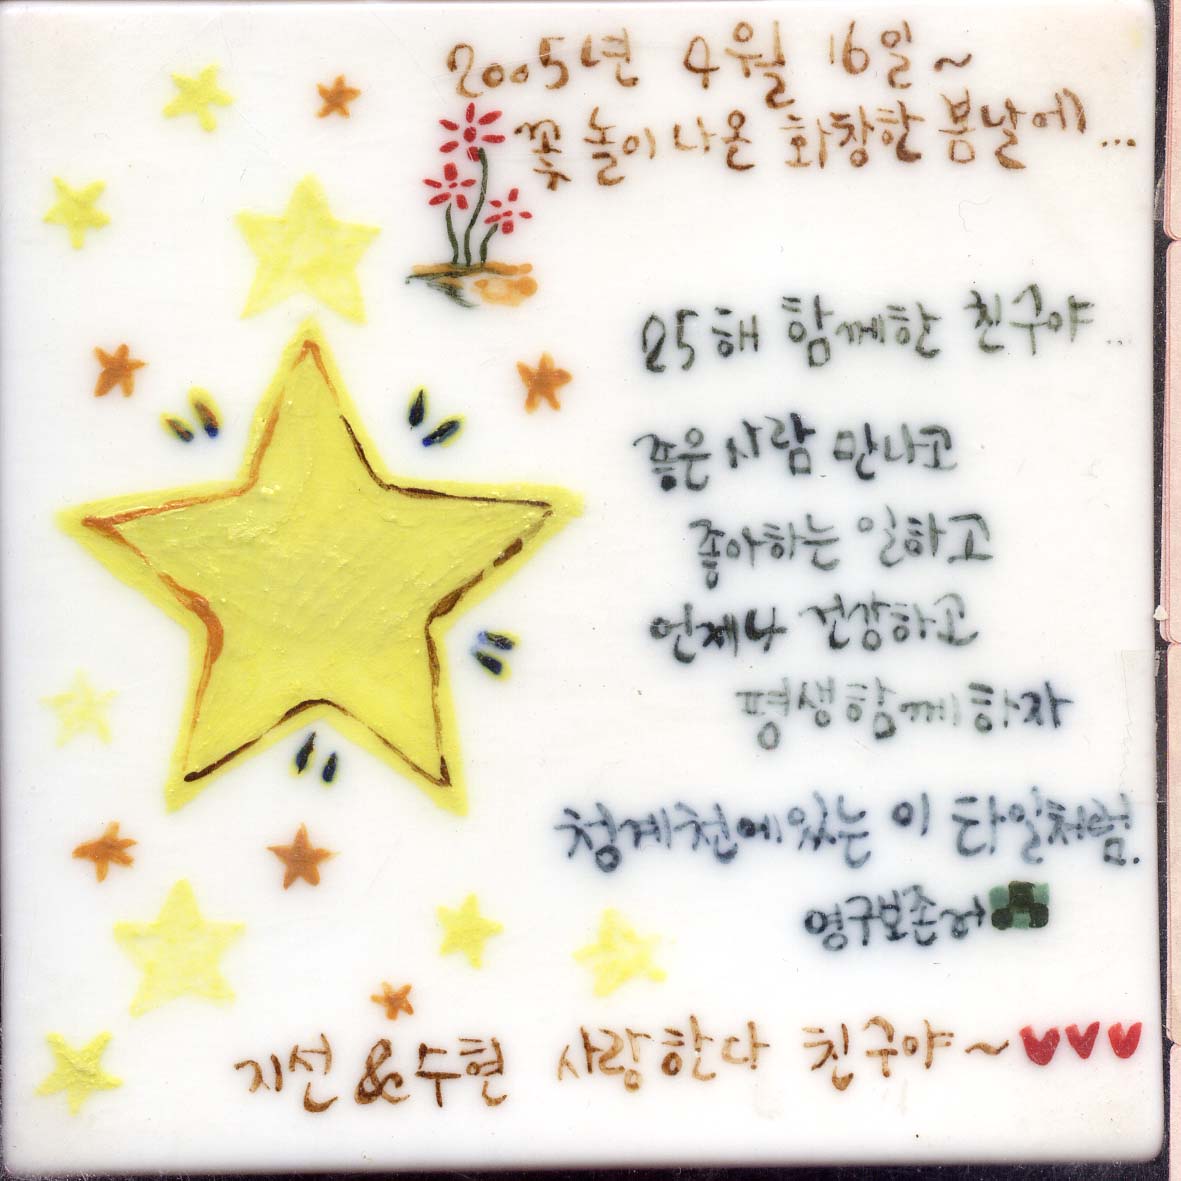 2005년 4월 16일~
꽃놀이 나온 화창한 봄날에...
25해 함께한 친구야...
좋은 사람 만나고
좋아하는 일하고
언제나 건강하고
평생함께하자
청계천에 있는 이 타일처럼.
영구보존
지선 & 수현 사랑한다 친구야~